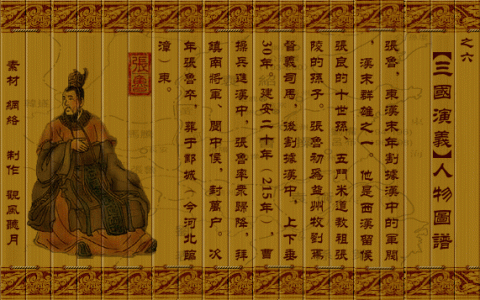 之六
【三國演義】人物圖譜
張魯，東漢末年割據漢中的軍閥
，漢末群雄之一。他是西漢留侯
張良的十世孫，五鬥米道教祖張
陵的孫子。張魯初爲益州牧劉焉
督義司馬，後割據漢中，上下垂
30年。建安二十年（215年），曹
操兵進漢中，張魯率衆歸降，拜
鎮南將軍、閬中侯，封萬户。次
年張魯卒，葬于鄴城（今河北臨
漳）東。
張魯
素材 網絡 制作 觀風聽月